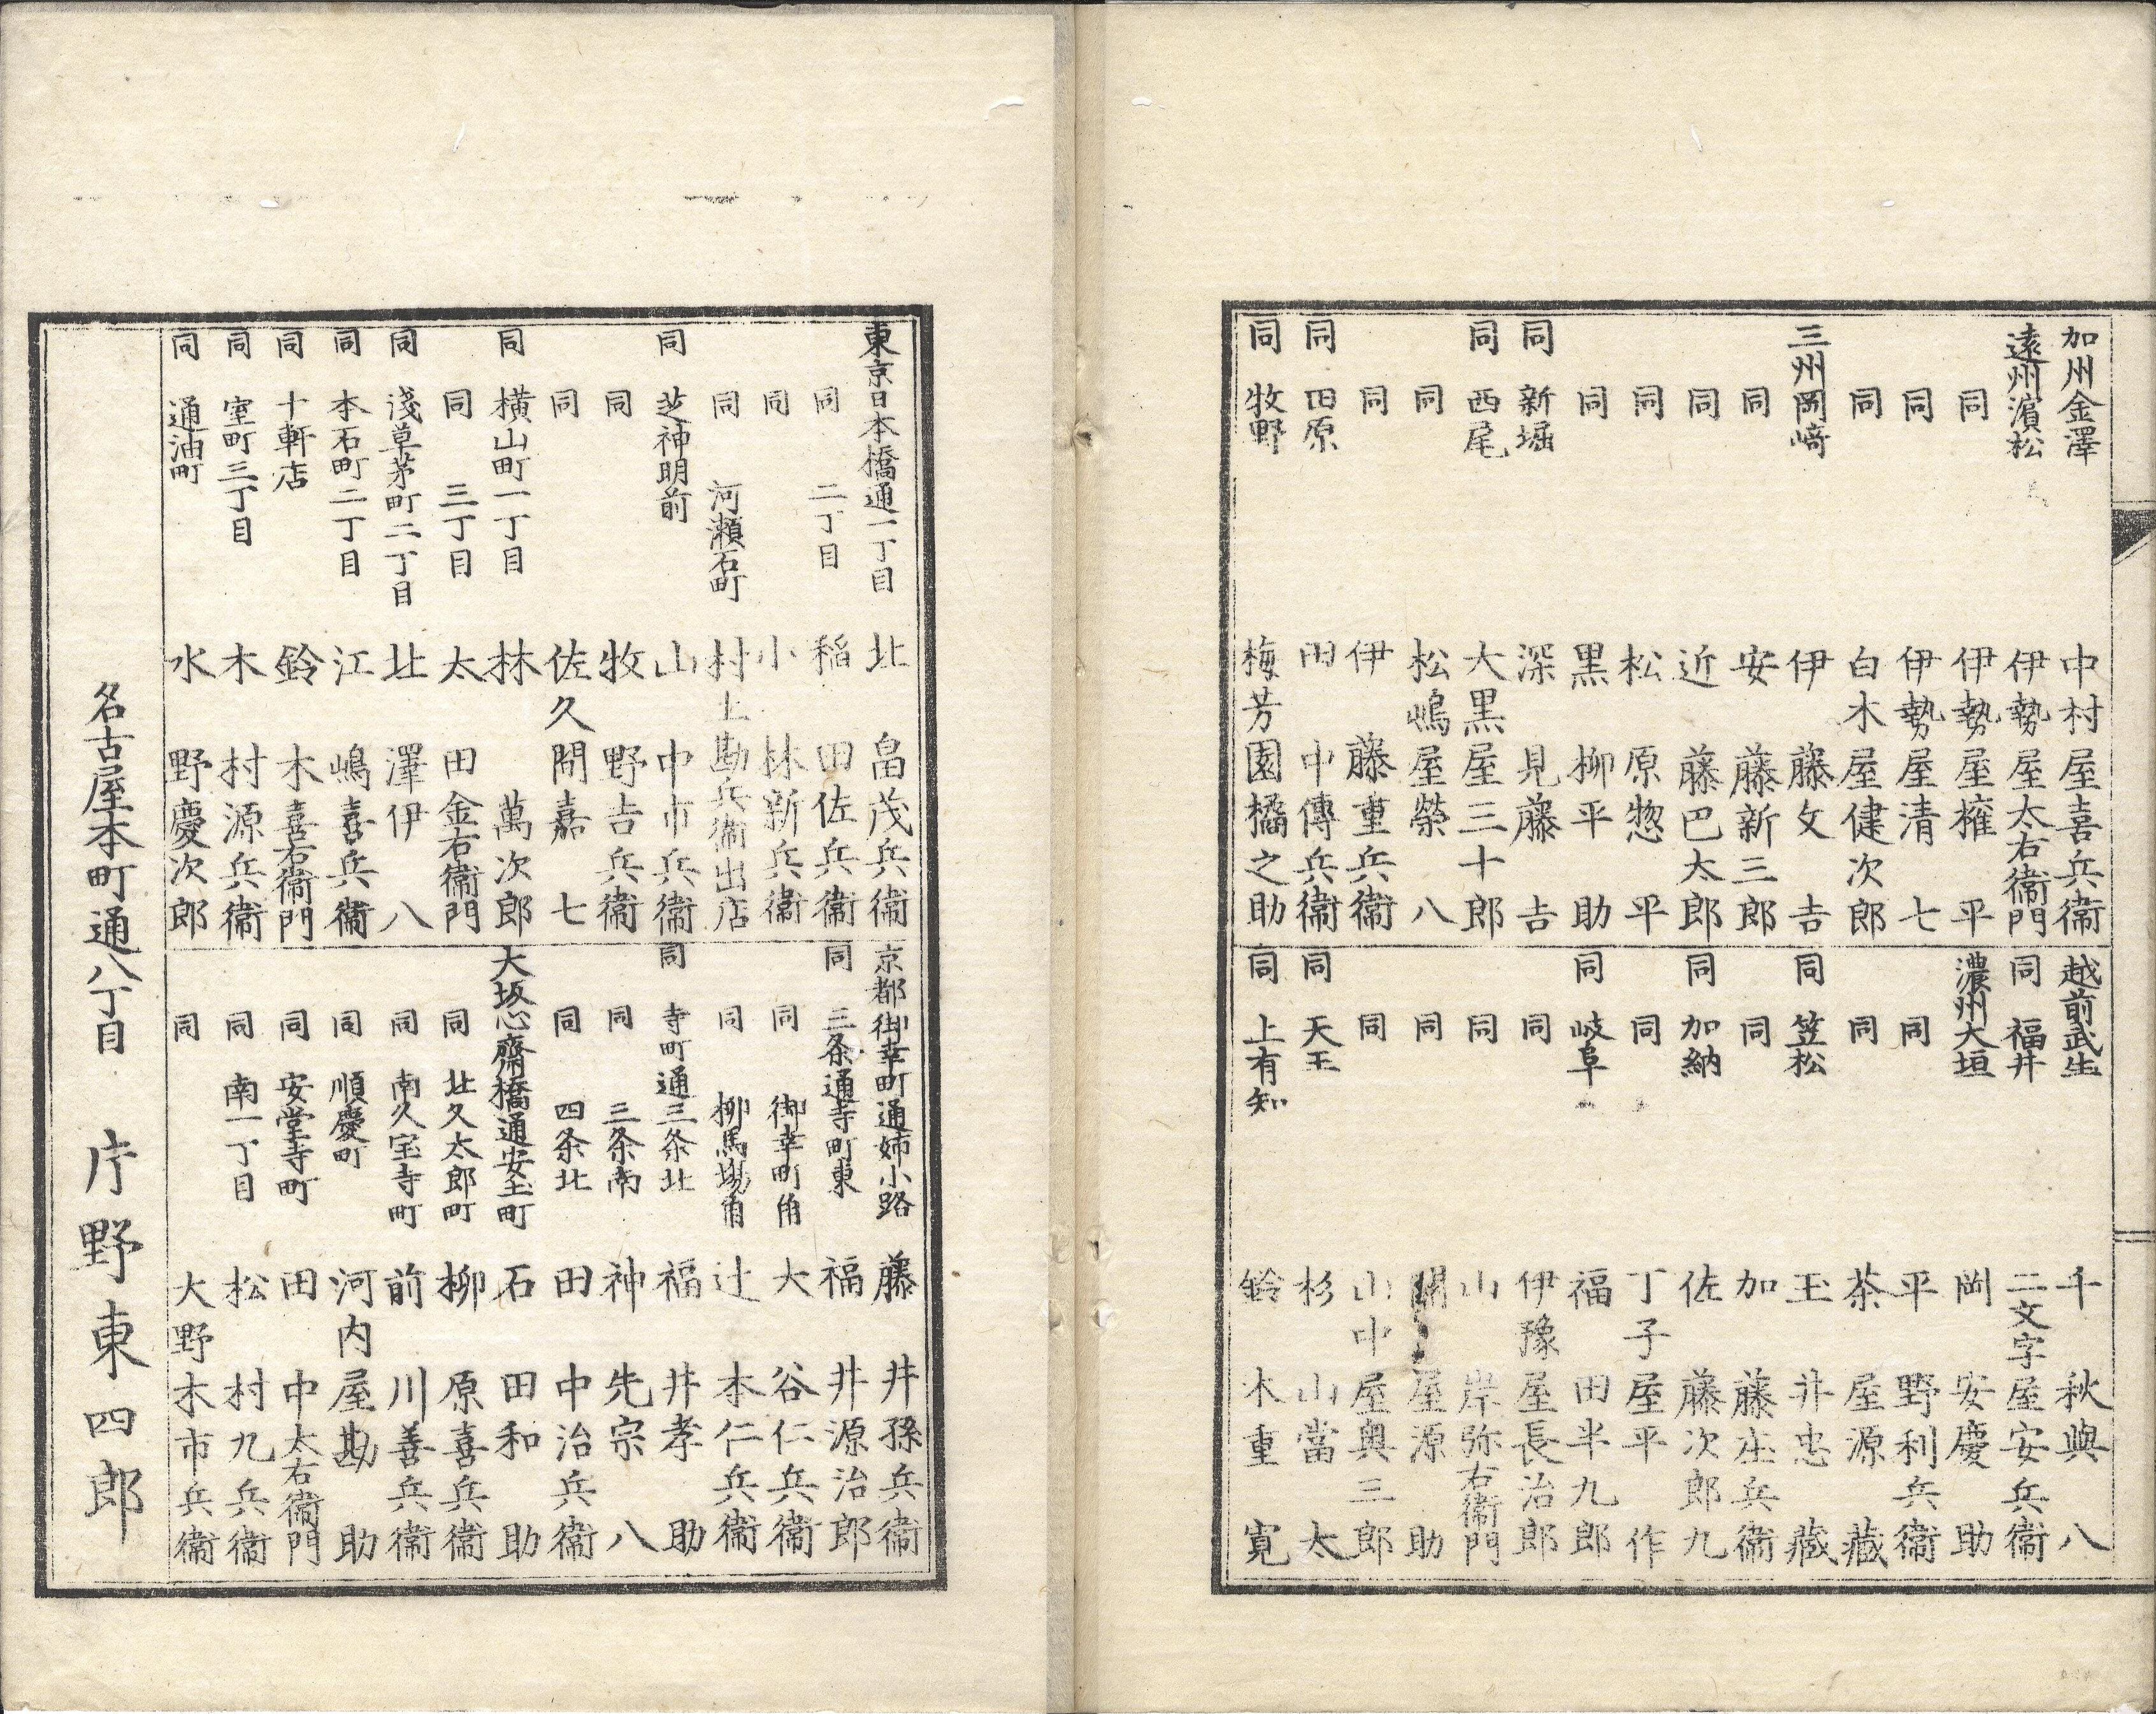 加州金澤 中村屋喜兵衞
遠州濵松 伊勢屋太右衞門
同 伊勢屋権平
同 伊勢屋清七
同 白木屋健次郎
三州岡﨑 伊藤文吉
同 安藤新三郎
同 近藤巴太郎
同 松原惣平
同 黒柳平助
同 新堀 深見藤吉
同 西尾 大黒屋三十郎
同 松嶋屋榮八
同 伊藤重兵衞
同 田原 田中傳兵衞
同 牧野 梅芳園橘之助
越前武生 千秋輿八
同 福井 二文字屋安兵衞
濃州大垣 岡安慶助
同 平野利兵衞
同 茶屋源藏
同 笠松 玉井忠藏
同 加藤庄兵衞
同 加納 佐藤次郎九
同 丁子屋平作
同 岐阜 福田半九郎
同 伊豫屋長治郎
同 山岸弥右衞門
同 屋源助
同 山中屋奥三郎
同 天王 杉山當太
同 上有知 鈴木重寛
東京日本橋通一丁目 北畠茂兵衞
同 二丁目 稲田佐兵衞
同 小林新兵衞
同 河瀬石町 村上勘兵衞出店
同 芝神明前 山中市兵衞
同 牧野吉兵衞
同 佐久間嘉七
同 横山町一丁目 林萬次郎
同 三丁目 太田金右衞門
同 淺草茅町二丁目 北澤伊八
同 本石町二丁目 江嶋喜兵衞
同 十軒店 鈴木喜右衞門
同 室町三丁目 木村源兵衞
同 通油町 水野慶次郎
京都御幸町通姉小路 藤井孫兵衞
同 三条通寺町東 福井源治郎
同 御幸町角 大谷仁兵衞
同 柳馬場角 辻本仁兵衞
同 寺町通三条北 福井孝助
同 三条南 神先宗八
同 四条北 田中治兵衞
大坂心齋橋通安土町 石田和助
同 北久太郎町 柳原喜兵衞
同 南久宝寺町 前川善兵衞
同 順慶町 河内屋勘助
同 安堂寺町 田中太右衞門
同 南一丁目 松村九兵衞
同 大野木市兵衞
名古屋本町通八丁目 片野東四郎